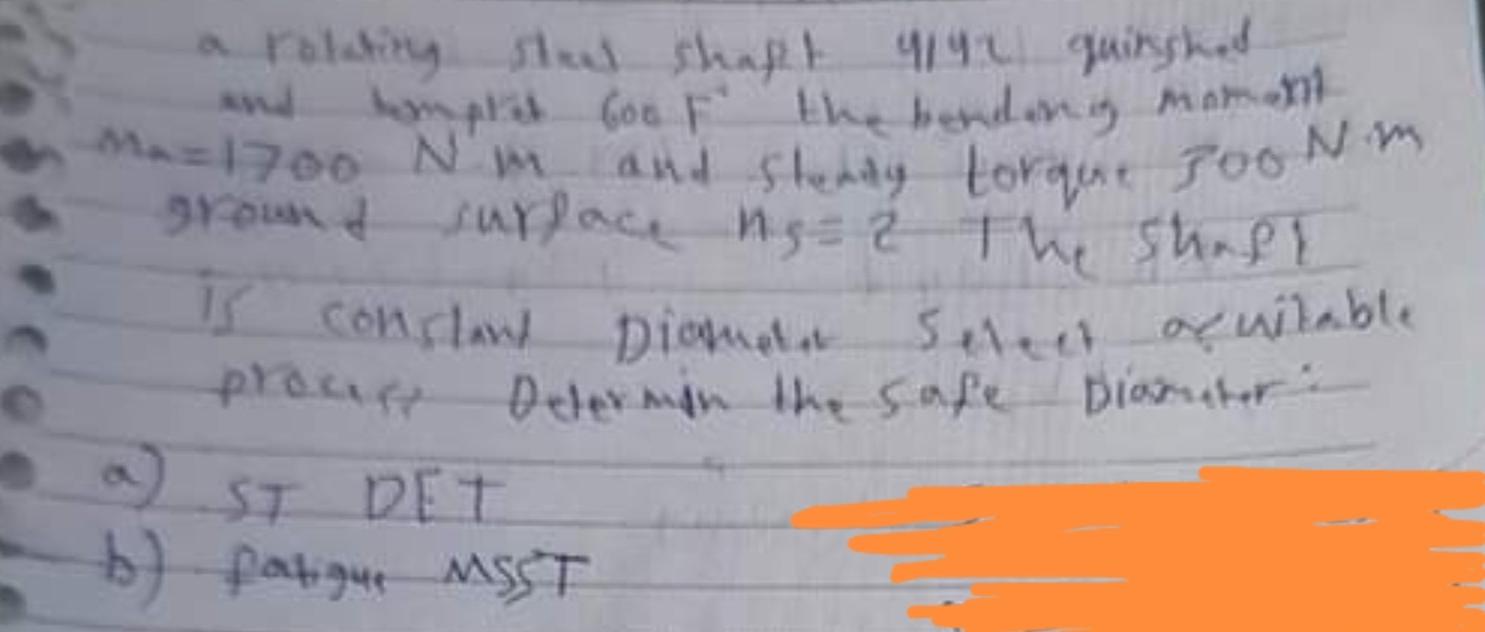 a rotating steel shaft 4142 quinshed
and templet 600 F° the bending moment
Ma=1700 N.m and steady torque 300 N.m
ground surface ns=2 The shaft
is constant Diameter Select a suitable
process Determin the safe Diameter:
a) ST DET
b) fatigue MSST